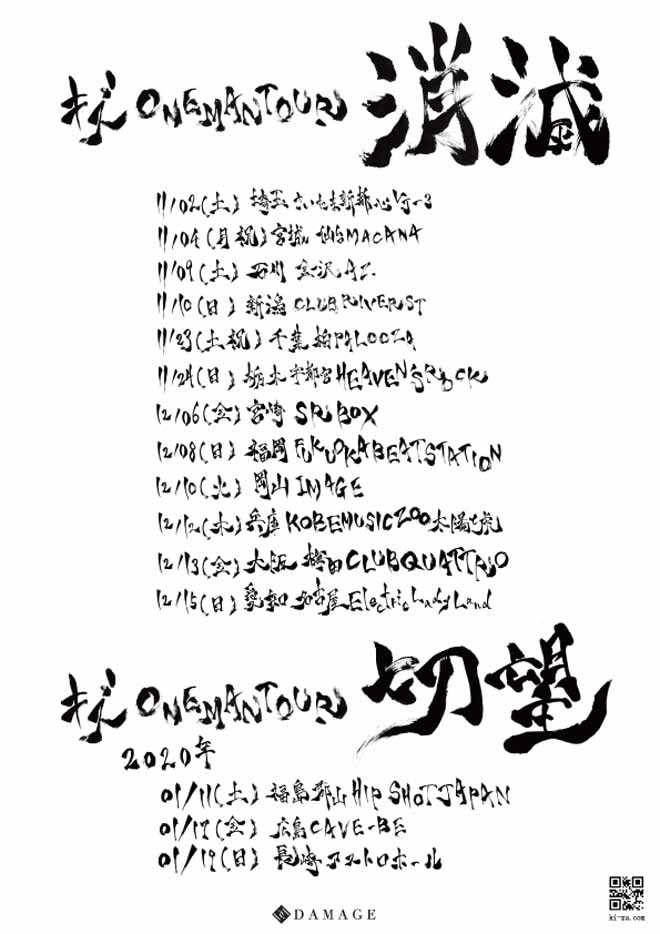 キズ ONEMANTOUR 消滅
11/02(土) 埼玉 さいたま新都心VJ-3
11/04(月祝) 宮城 仙台MACANA
11/09(土) 石川 金沢AZ
11/10(日) 新潟 CLUBRIVERST
11/23(土祝) 千葉 柏PALOOZA
11/24(日) 栃木 宇都宮HEAVEN'SROCK
12/06(金) 宮崎 SRBOX
12/08(日) 福岡 FUKUOKABEATSTATION
12/10(火) 岡山 IMAGE
12/12(木) 兵庫 KOBEMUSICZOO太陽と虎
12/13(金) 大阪 梅田CLUBQUATTRO
12/15(日) 愛知 名古屋ElectricLadyLand
キズ ONEMANTOUR 切望
2020年
01/11(土) 福島 郡山HIPSHOTJAPAN
01/17(金) 広島CAVE-BE
01/19(日) 長崎アストロホール
DAMAGE
ki-zu.com